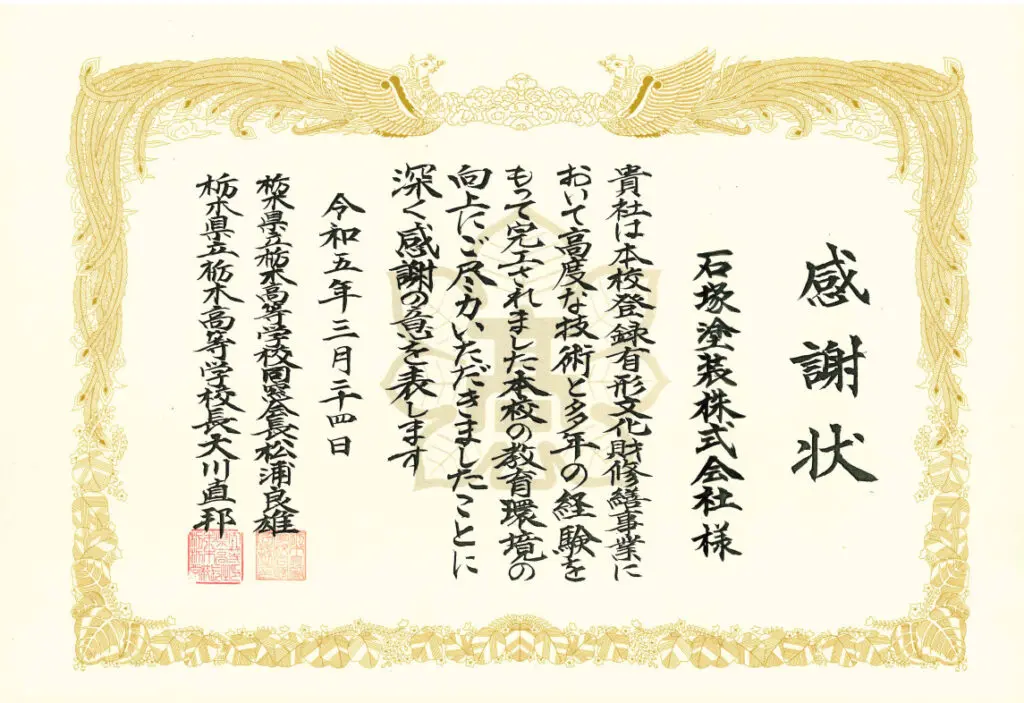 感謝状
石塚塗装株式会社様
貴社は本校登録有形文化財修繕事業に
おいて高度な技術と多年の経験を
もって完工されました本校の教育環境の
向上にご尽力いただきましたことに
深く感謝の意を表します
令和五年三月二十四日
栃木県立栃木高等学校同窓会長松浦良雄
栃木県立栃木高等学校長大川直邦